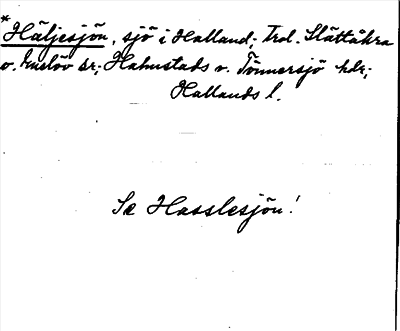 * Häljesjön, sjö i Halland; Trol. Slättåkra
o. Enslöv sr; Halmstads o. Tönnersjö hdr;
Hallands l.
Se Hasslesjön!